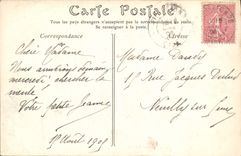 Carte Postale
Tous les pays étrangers n'acceptent pas la correspondance au recto.
Se renseigner à la poste
Correspondance
Adresse
Chère Madame
Nous arriverons demain
mercredi chercher la
Votre petite Jeanne
Août 1905
Madame
Rue Jacques Dulud
Neuilly sur Seine